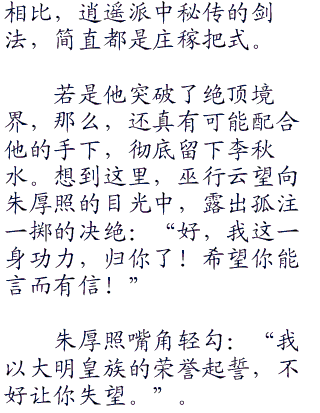 相比，逍遥派中秘传的剑
法，简直都是庄稼把式。
若是他突破了绝顶境
界，那么，还真有可能配合
他的手下，彻底留下李秋
水。想到这里，巫行云望向
朱厚照的目光中，露出孤注
一掷的决绝：“好，我这一
身功力，归你了！希望你能
言而有信！”
朱厚照嘴角轻勾：“我
以大明皇族的荣誉起誓，不
好让你失望。”。